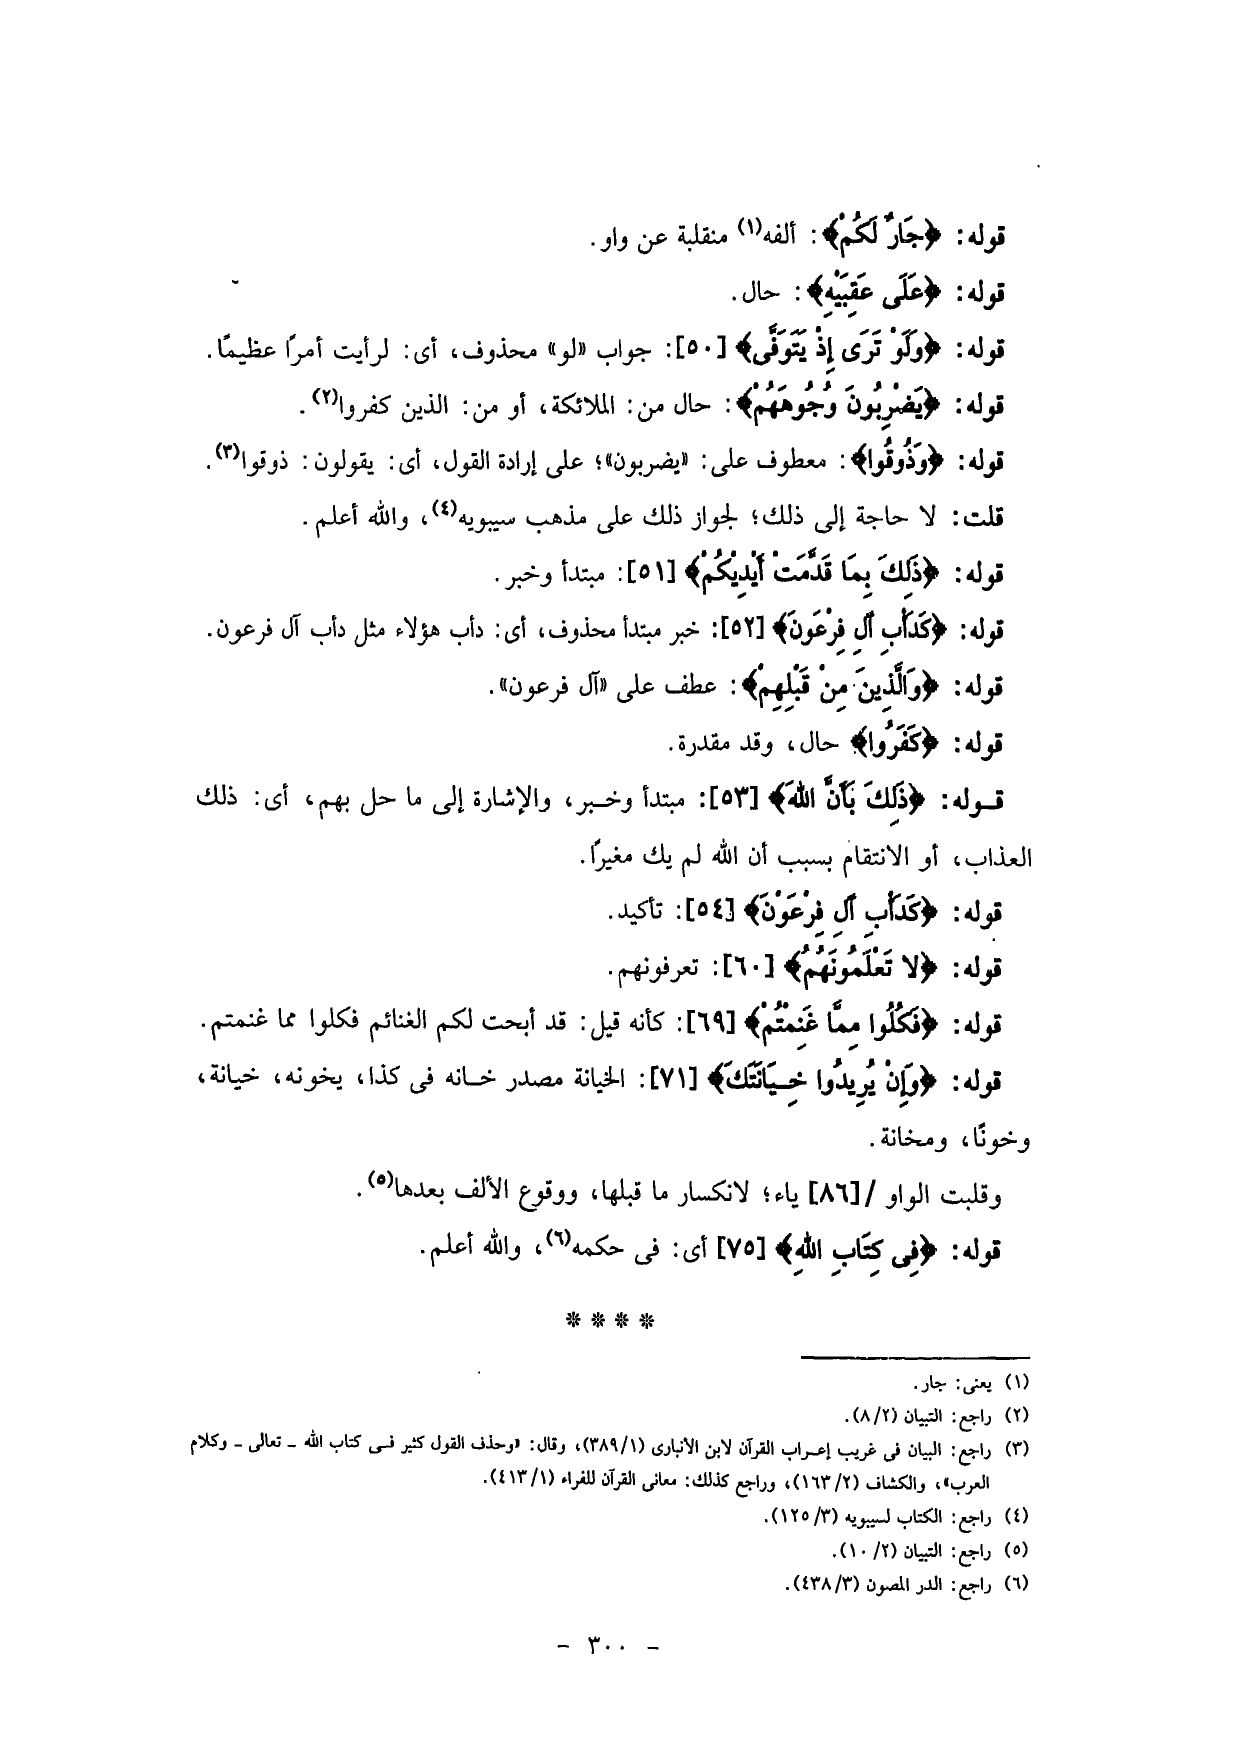 قوله: ﴿جَارٌ لَكُمْ﴾: ألفه(١) منقلبة عن واو.
قوله: ﴿عَلَى عَقِبَيْهِ﴾: حال.
قوله: ﴿وَلَوْ تَرَى إِذْ يَتَوَفَّى﴾ [٥٠]: جواب «لو» محذوف، أى: لرأيت أمرًا عظيمًا.
قوله: ﴿يَضْرِبُونَ وُجُوهَهُمْ﴾: حال من: الملائكة، أو من: الذين كفروا(٢).
قوله: ﴿وَذُوقُوا﴾: معطوف على: «يضربون»؛ على إرادة القول، أى: يقولون: ذوقوا(٣).
قلت: لا حاجة إلى ذلك؛ لجواز ذلك على مذهب سيبويه(٤)، والله أعلم.
قوله: ﴿ذَلِكَ بِمَا قَدَّمَتْ أَيْدِيكُمْ﴾ [٥١]: مبتدأ وخبر.
قوله: ﴿كَدَأْبِ آلِ فِرْعَونَ﴾ [٥٢]: خبر مبتدأ محذوف، أى: دأب هؤلاء مثل دأب آل فرعون.
قوله: ﴿وَالَّذِينَ مِنْ قَبْلِهِمْ﴾: عطف على «آل فرعون».
قوله: ﴿كَفَرُوا﴾ حال، وقد مقدرة.
قـوله: ﴿ذَلِكَ بَأَنَّ اللهَ﴾ [٥٣]: مبتدأ وخـبر، والإشارة إلى ما حل بهم، أى: ذلك
العذاب، أو الانتقام بسبب أن الله لم يك مغيرًا.
قوله: ﴿كَدَأْبِ آلِ فِرْعَوْنَ﴾ [٥٤]: تأكيد.
قوله: ﴿لا تَعْلَمُونَهُمُ﴾ [٦٠]: تعرفونهم.
قوله: ﴿فَكُلُوا مِمَّا غَنِمْتُمْ﴾ [٦٩]: كأنه قيل: قد أبحت لكم الغنائم فكلوا مما غنمتم.
قوله: ﴿وَإِنْ يُرِيدُوا خِـيَانَتَكَ﴾ [٧١]: الخيانة مصدر خـانه فى كذا، يخونه، خيانة،
وخونًا، ومخانة.
وقلبت الواو /[٨٦] ياء؛ لانكسار ما قبلها، ووقوع الألف بعدها(٥).
قوله: ﴿فِى كِتَابِ اللهِ﴾ [٧٥] أى: فى حكمه(٦)، والله أعلم.
* * * *
(١) يعنى: جار.
(٢) راجع: التبيان (٢/ ٨).
(٣) راجع: البيان فى غريب إعـراب القرآن لابن الأنبارى (١/ ٣٨٩)، وقال: «وحذف القول كثير فـى كتاب الله ـ تعالى ـ وكلام
العرب»، والكشاف (٢/ ١٦٣)، وراجع كذلك: معانى القرآن للفراء (١/ ٤١٣).
(٤) راجع: الكتاب لسيبويه (٣/ ١٢٥).
(٥) راجع: التبيان (٢/ ١٠).
(٦) راجع: الدر المصون (٣/ ٤٣٨).
- ٣٠٠ -